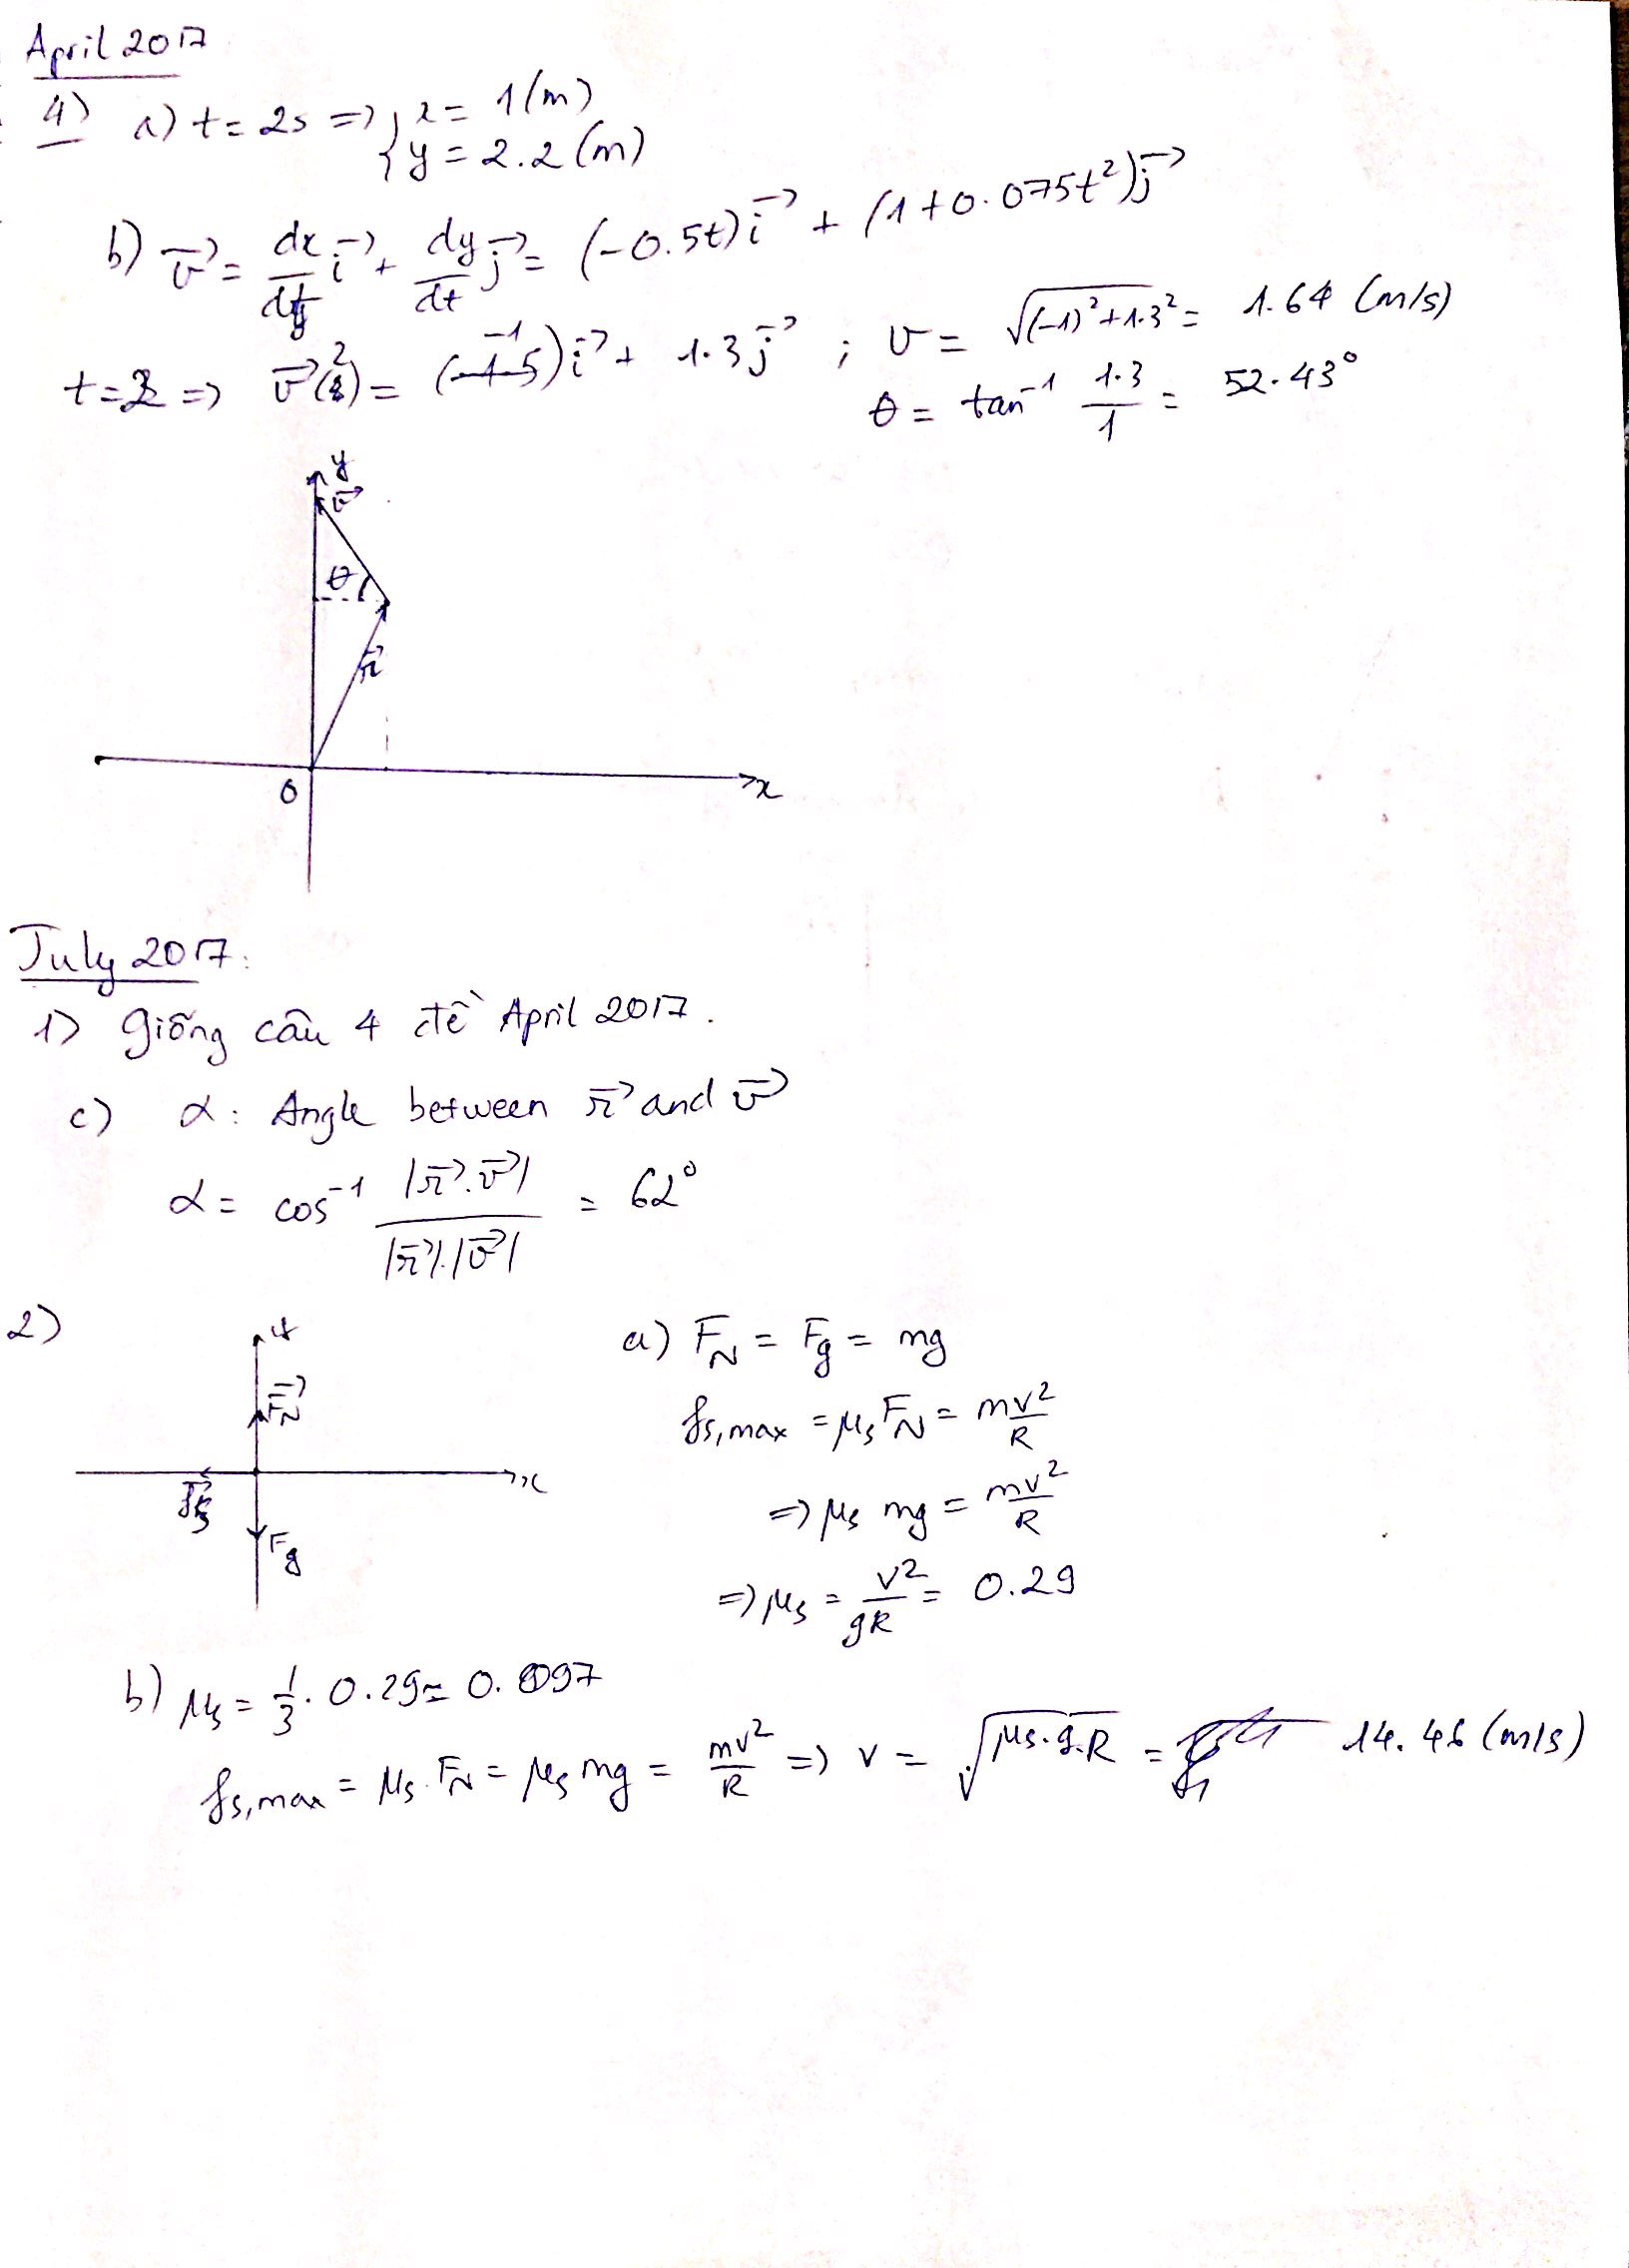 April 2017
4) a) t = 2s => { x = 1 (m)
y = 2.2 (m)
b) v⃗ = dx/dt i⃗ + dy/dt j⃗ = (-0.5t) i⃗ + (1+0.075t²) j⃗
t=2 => v⃗(2) = (-1) i⃗ + 1.3 j⃗ ; v = √((-1)²+1.3²) = 1.64 (m/s)
θ = tan⁻¹ 1.3/1 = 52.43°
y
v⃗
θ
r⃗
0
x
July 2017:
1) Giống câu 4 đề April 2017.
c) α: Angle between r⃗ and v⃗
α = cos⁻¹ |r⃗.v⃗| / |r⃗|.|v⃗| = 62°
2)
y
F⃗_N
x
f⃗_s
F_g
a) F_N = F_g = mg
f_s,max = μ_s F_N = mv²/R
=> μ_s mg = mv²/R
=> μ_s = v²/gR = 0.29
b) μ_s = 1/3 . 0.29 = 0.097
f_s,max = μ_s . F_N = μ_s mg = mv²/R => v = √(μ_s.g.R) = 14.46 (m/s)